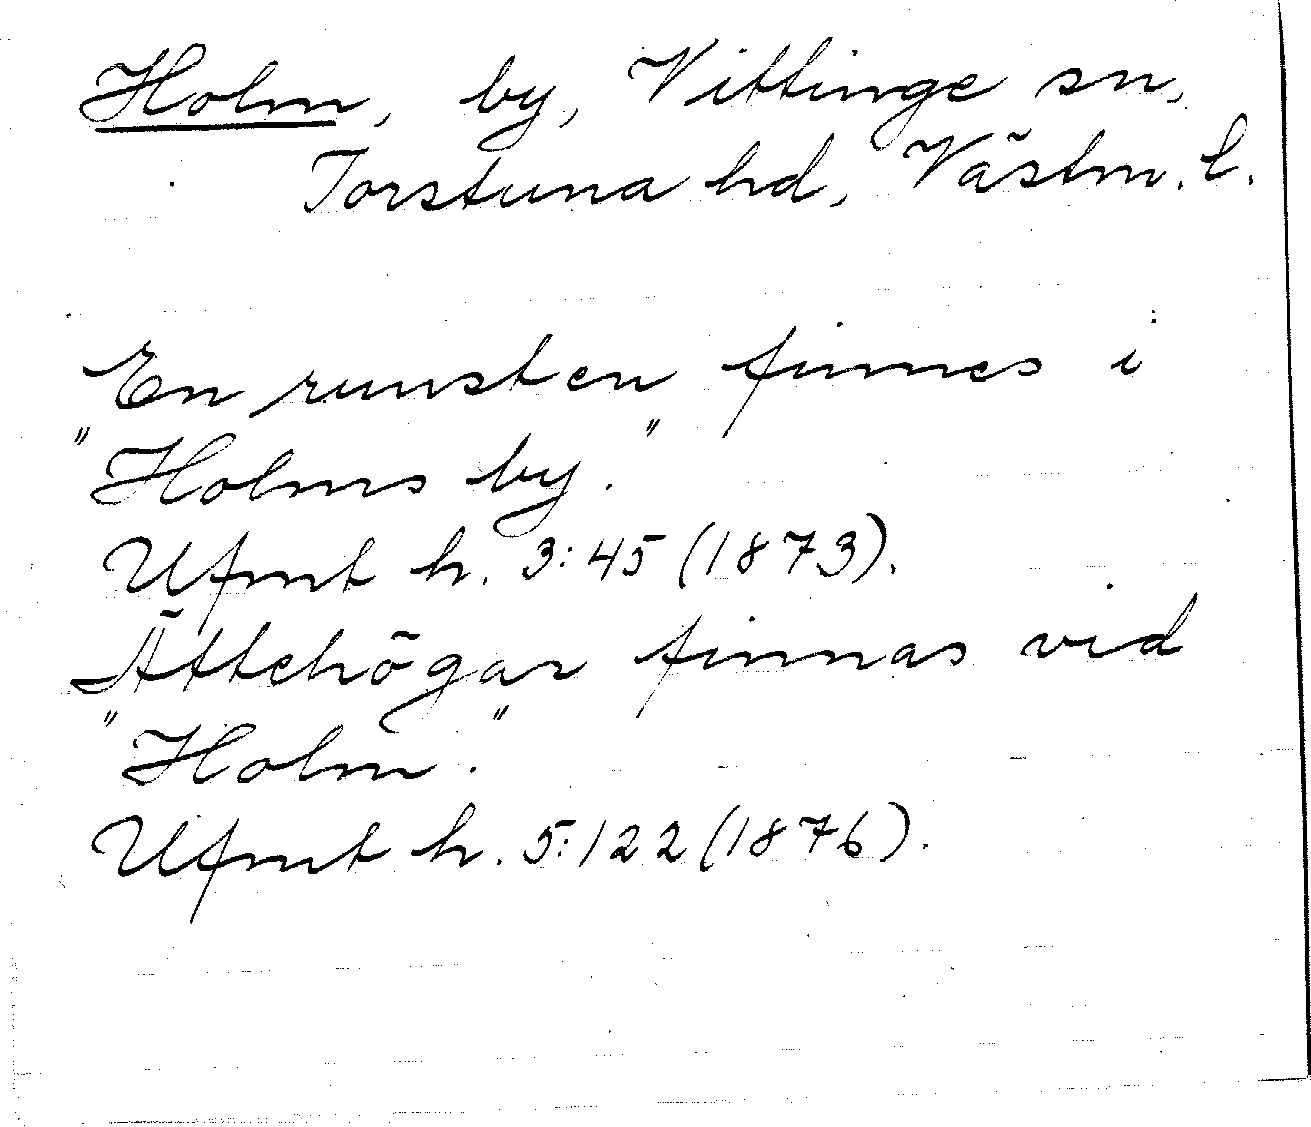 Holm, by, Vittinge sn,
Torstuna hd, Västm. l.
En runsten finnes i
"Holms by."
Ufmt h. 3:45 (1873).
Ättehögar finnas vid
"Holm."
Ufmt h. 5:122 (1876).